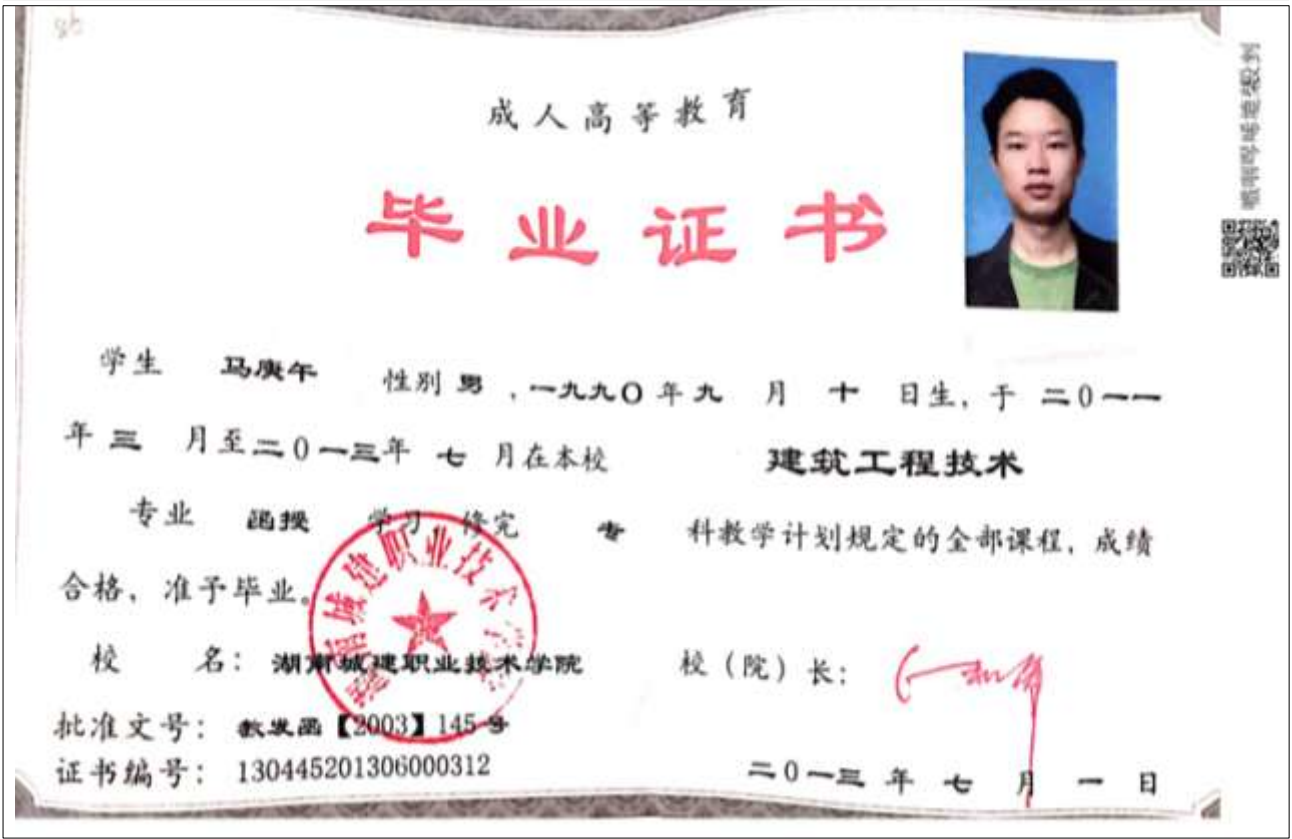 成人高等教育
毕业证书
学生 马庚午 性别 男 ,一九九〇年九 月 十 日生, 于 二0一一
年 三 月至二0一三年 七 月在本校 建筑工程技术
专业 函授 学习 修完 专 科教学计划规定的全部课程, 成绩
合格, 准予毕业。
湖南城建职业技术学院
校 名: 湖南城建职业技术学院 校(院)长:
批准文号: 教发函【2003】145号
证书编号: 130445201306000312
二0一三 年 七 月 一 日